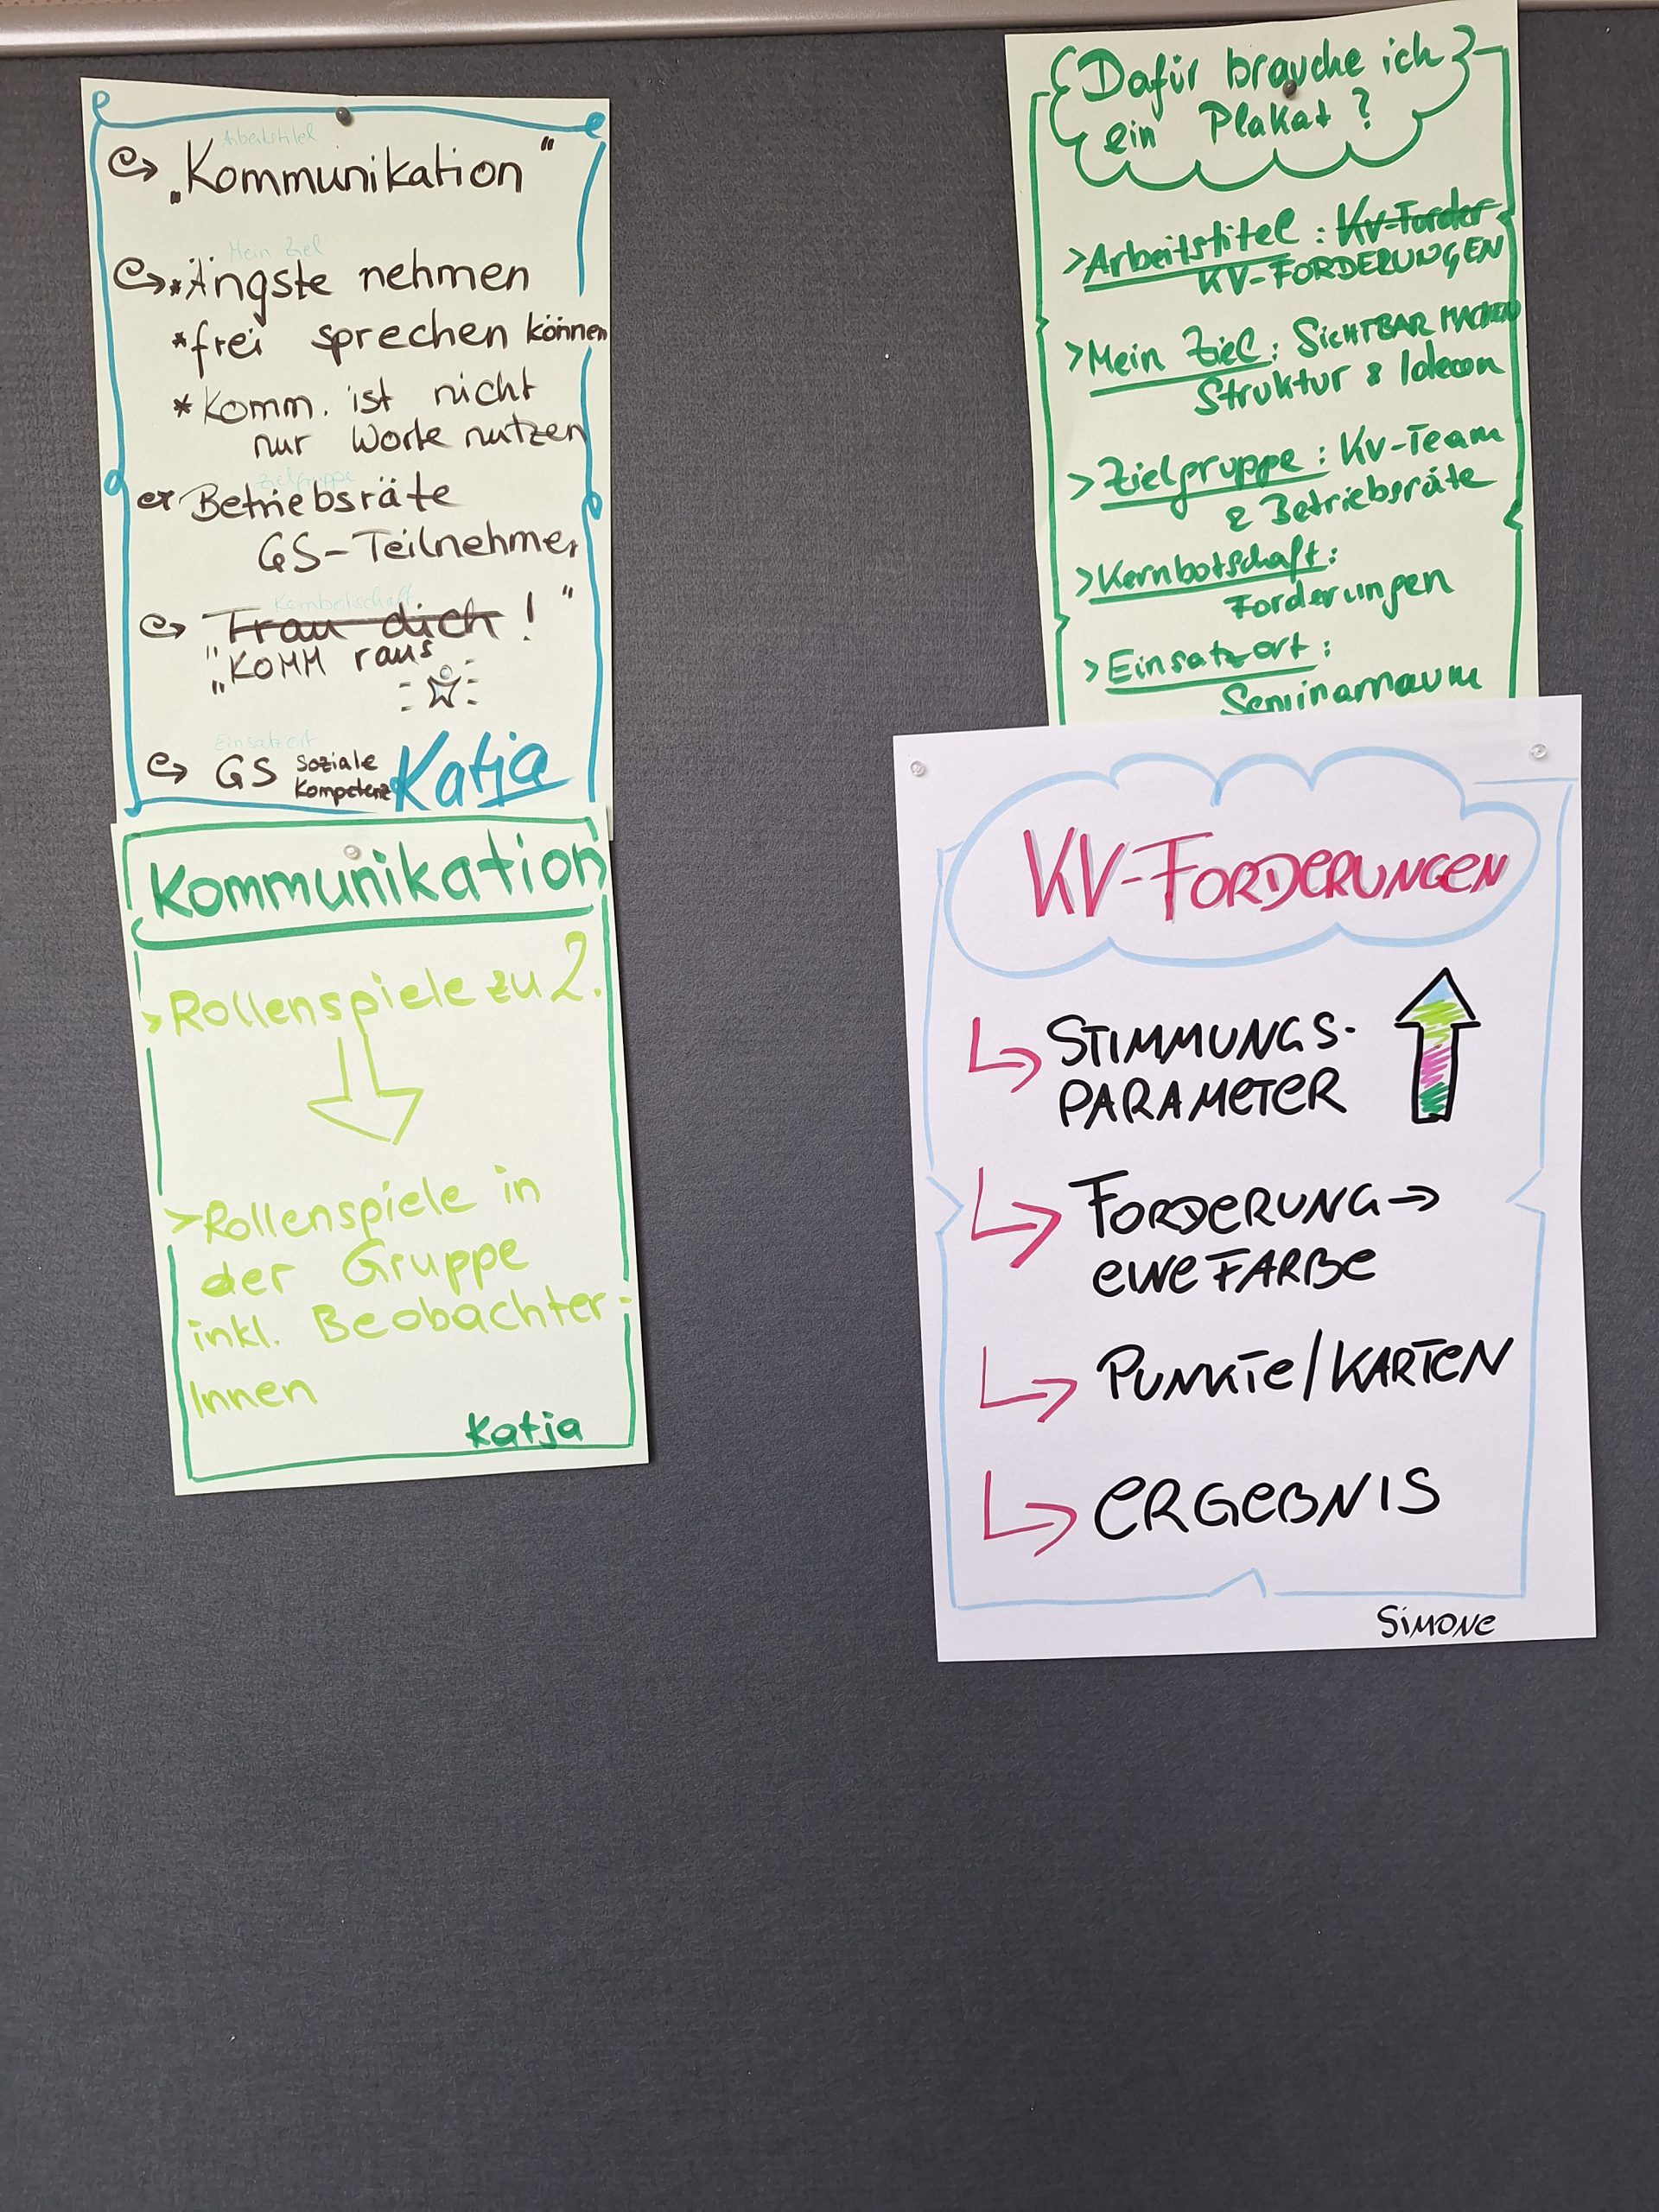 Arbeitstitel
„Kommunikation"
Mein Ziel
*Ängste nehmen
*frei sprechen können
*Komm. ist nicht
nur Worte nutzen
Zielgruppe
Betriebsräte
GS-Teilnehmer
Kernbotschaft
Trau dich!"
"KOMM raus
„
Einsatzort
GS Soziale
Kompetenz
Katja
Kommunikation
>Rollenspiele zu 2.
>Rollenspiele in
der Gruppe
inkl. Beobachter-
Innen
Katja
Dafür brauche ich
ein Plakat?
>Arbeitstitel: KV-Forder
KV-FORDERUNGEN
>Mein Ziel: SICHTBAR MACHEN
Struktur & Ideen
>Zielgruppe: KV-Team
& Betriebsräte
>Kernbotschaft:
Forderungen
>Einsatzort:
Seminarraum
KV-FORDERUNGEN
STIMMUNGS-
PARAMETER
FORDERUNG→
EINE FARBE
PUNKTE/KARTEN
ERGEBNIS
SIMONE